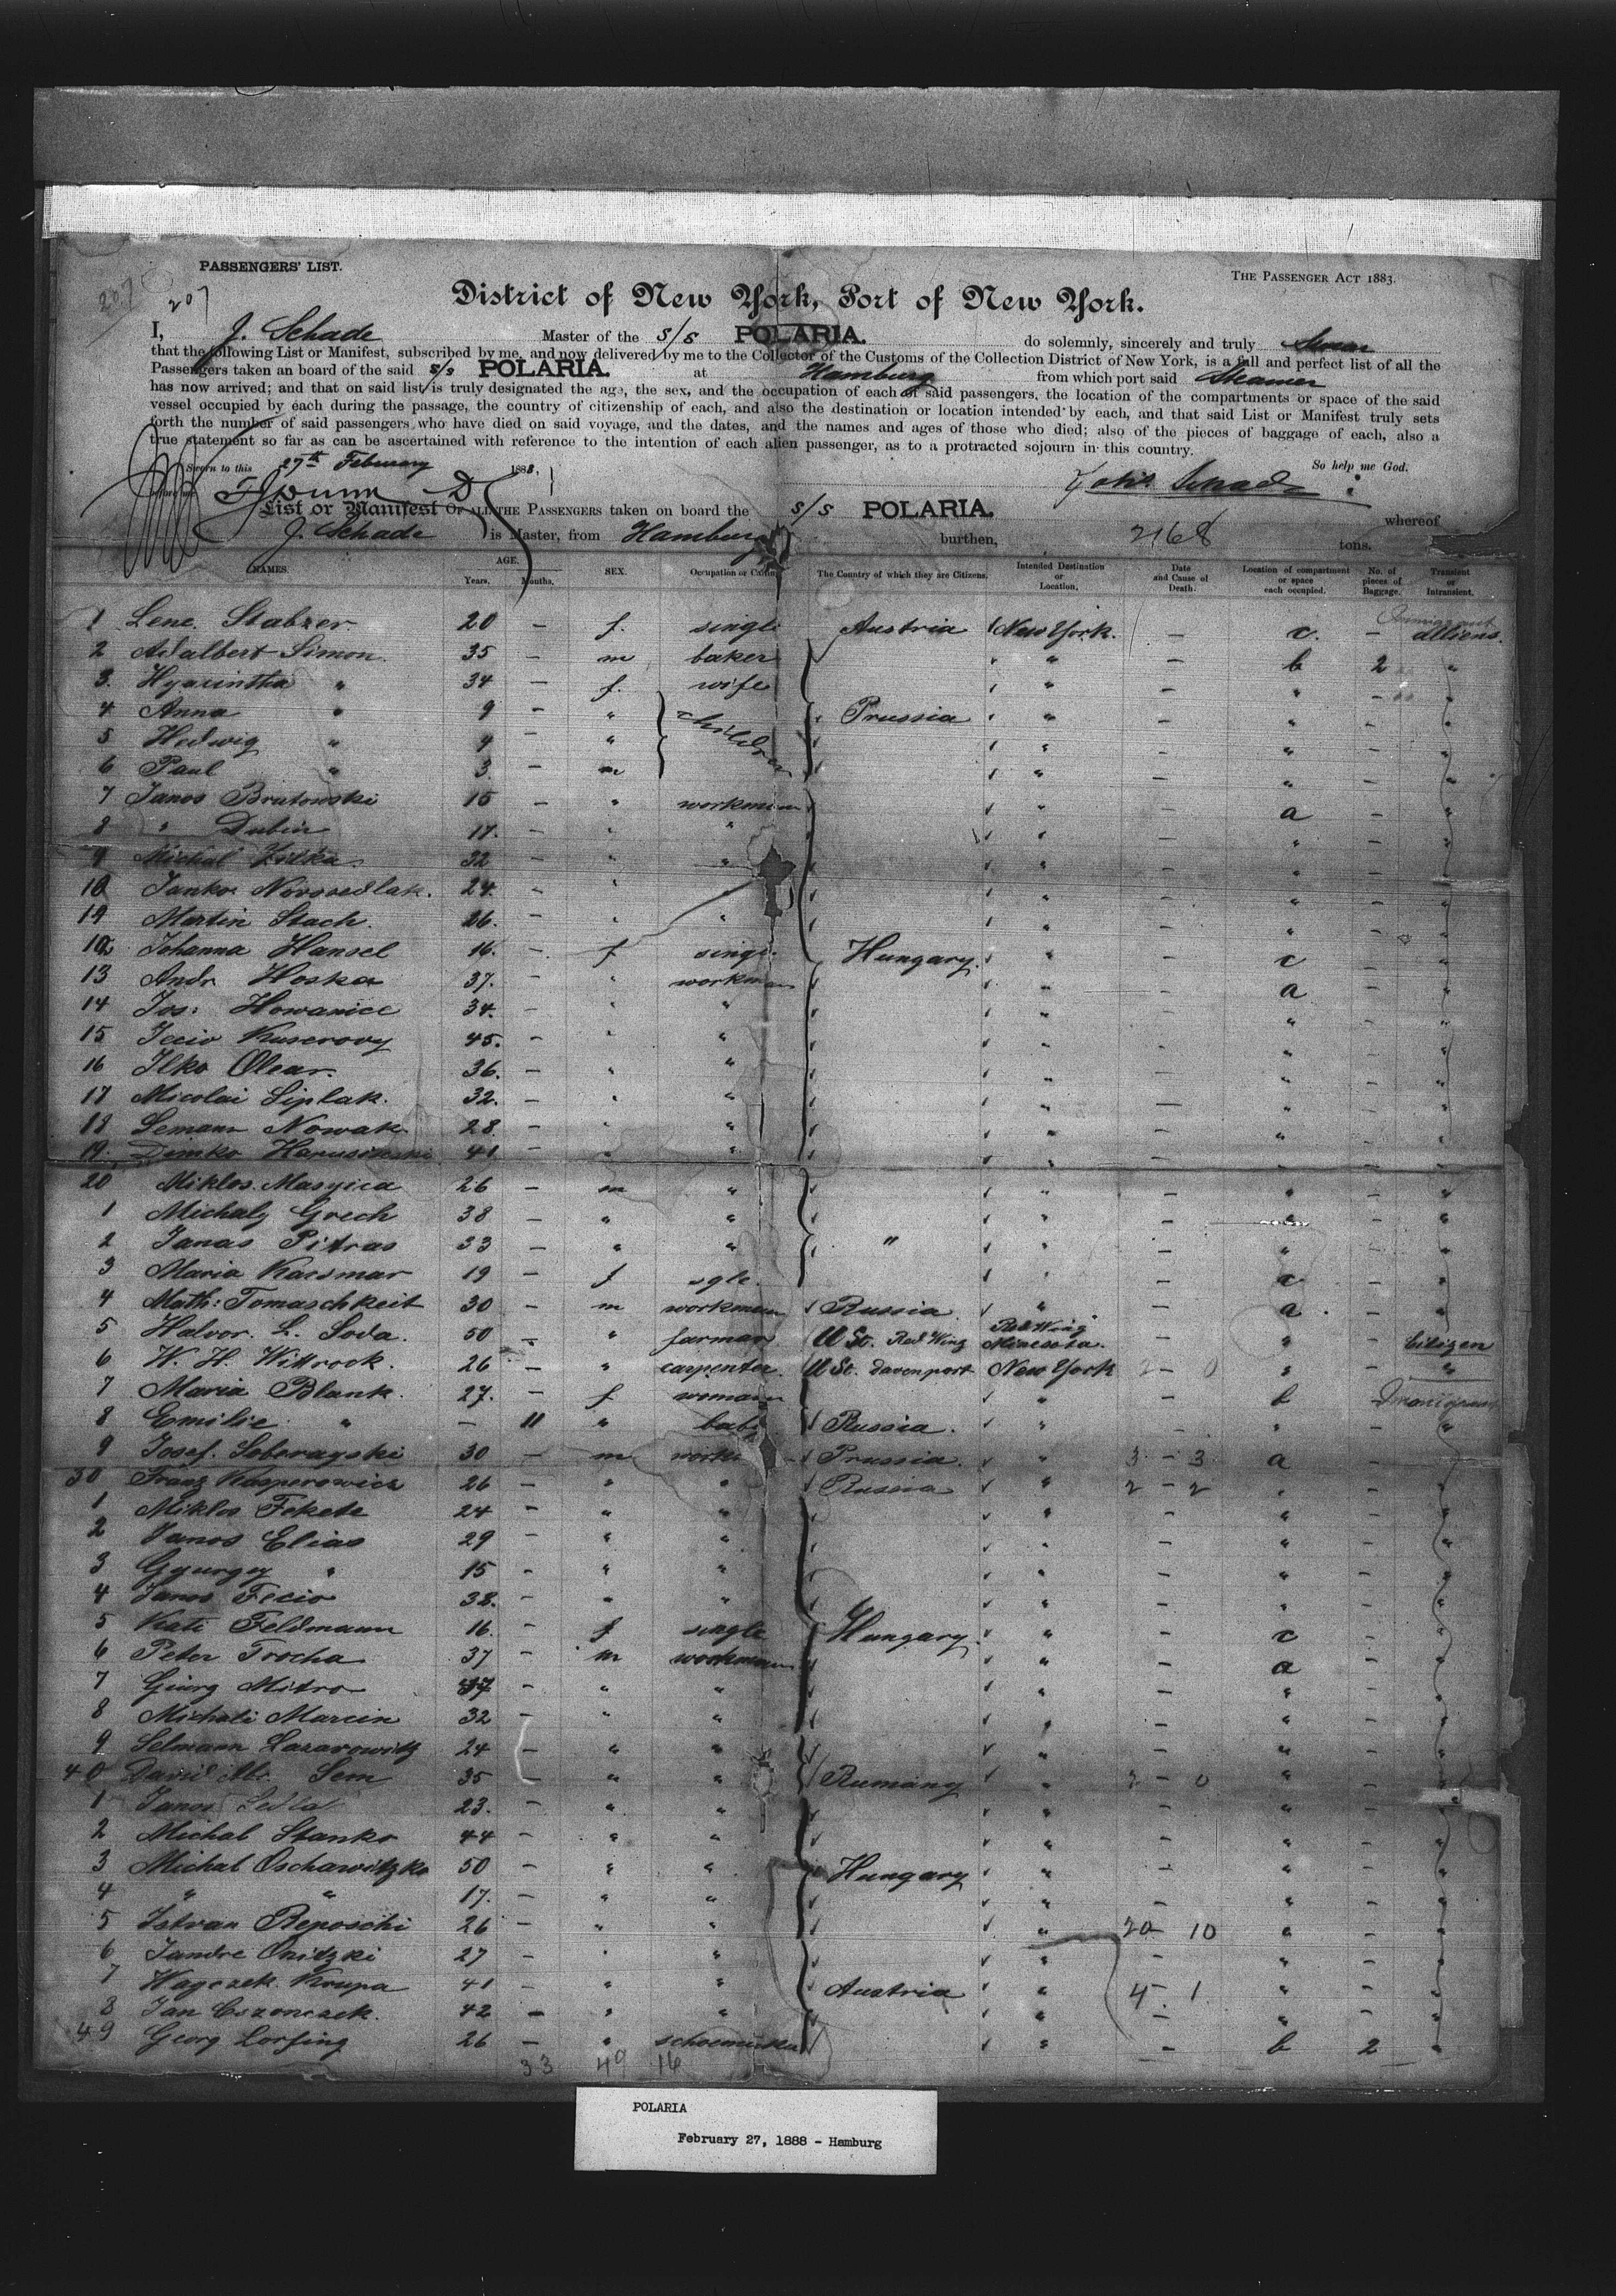 PASSENGERS' LIST.
THE PASSENGER ACT 1883.
207
207
District of New York, Port of New York.
I, J. Schade Master of the S/S POLARIA. do solemnly, sincerely and truly Swear
that the following List or Manifest, subscribed by me, and now delivered by me to the Collector of the Customs of the Collection District of New York, is a full and perfect list of all the
Passengers taken an board of the said S/S POLARIA. at Hamburg from which port said Steamer
has now arrived; and that on said list is truly designated the age, the sex, and the occupation of each of said passengers, the location of the compartments or space of the said
vessel occupied by each during the passage, the country of citizenship of each, and also the destination or location intended by each, and that said List or Manifest truly sets
forth the number of said passengers who have died on said voyage, and the dates, and the names and ages of those who died; also of the pieces of baggage of each, also a
true statement so far as can be ascertained with reference to the intention of each alien passenger, as to a protracted sojourn in this country.
So help me God.
Sworn to this 27th February 1888,
List or Manifest OF ALL THE PASSENGERS taken on board the S/S POLARIA. whereof
J. Schade is Master, from Hamburg burthen, 2168 tons.
NAMES. AGE. Years. Months. SEX. Occupation or The Country of which they are Citizens. Intended Destination or Location. Date and Cause of Death. Location of compartment or space each occupied. No. of pieces of Baggage. Transient or Intransient.
1 Lene Stabzer 20 — f. single Austria New York. — c. — Alliens
2 Adalbert Simon 35 — m baker " — b 2 "
3. Hyacintha " 34 — f. wife " — " — "
4 Anna " 9 — " children Prussia " — " — "
5 Hedwig " 4 — " " — " — "
6 Paul " 3 — m " — " — "
7 Janos Brutowski 15 — " workman " — a — "
8 " Dubin 17. — " " " — " — "
9 Michal Zitka 32 — " " " — " — "
10 Janko Novosedlak. 24. — " " — " — "
11 Martin Stach. 26. — " " " — " — "
12 Johanna Hansel 16. — f single Hungary. " — c — "
13 Andr. Hoska 37. — " workman " — a — "
14 Jos: Howaniec 34. — " " " — " — "
15 Jecio Kuserovy 45. — " " " — " — "
16 Ilko Olear. 36. — " " " — " — "
17 Micolai Siplak. 32. — " " " — " — "
18 Semann Nowak 28. — " " " — " — "
19. Dimko 41 — " " " — " — "
20 Miklos Masyica 26 — m " " — " — "
1 Michaly Grech 38 — " " " — " — "
2 Janas Pitras 33 — " " " " — " — "
3 Maria Kacsmar 19 — f sgle. " — c — "
4 Math: Tomaschkeit 30 — m workman Russia " — a — "
5 Halvor. L. Soda. 50 — " farmer U St. Red Wing Red Wing Minesota. — " — Citizen
6 W. H. Wittrock. 26 — " carpenter. U St. Davenport New York 2 — 0 " — "
7 Maria Blank. 27. — f woman " — b
8 Emilie " — 11 " baby Russia. " — " — "
9 Josef. Soberayski 30 — m Prussia. " 3 — 3 a — "
30 Franz Kasperowicz 26 — " " Russia " 2 — 2 " — "
1 Miklos Fekete 24 — " " " — " — "
2 Janos Elias 29 — " " " — " — "
3 Gyurgy " 15 — " " " — " — "
4 Janos Fecio 38. — " " " — " — "
5 Kati Feldmann 16. — f single Hungary. " — c — "
6 Peter Trocha 37 — m workman " — a — "
7 Giurg Mitro 37 — " " " — " — "
8 Michali Marcin 32 — " " " — " — "
9 Selmann Lazarowitz 24 — " " " — " — "
40 David Sem 35 — " " Rumäny " 2 — 0 " — "
1 Janos 23. — " " " — " — "
2 Michal Stanko 44 — " " " — " — "
3 Michal Oschawitzko 50 — " " Hungary " — " — "
4 " " 17. — " " " — " — "
5 Istvan Beposchi 26 — " " " 20 — 10 " — "
6 Jandre Onitzki 27 — " " " — " — "
7 Krupa 41 — " " Austria " 4 — 1 " — "
8 Jan Cszonczek. 42 — " " " — " — "
49 Georg Lorfing 26 — " schoemaker " — b 2 "
33 49 16
POLARIA
February 27, 1888 - Hamburg